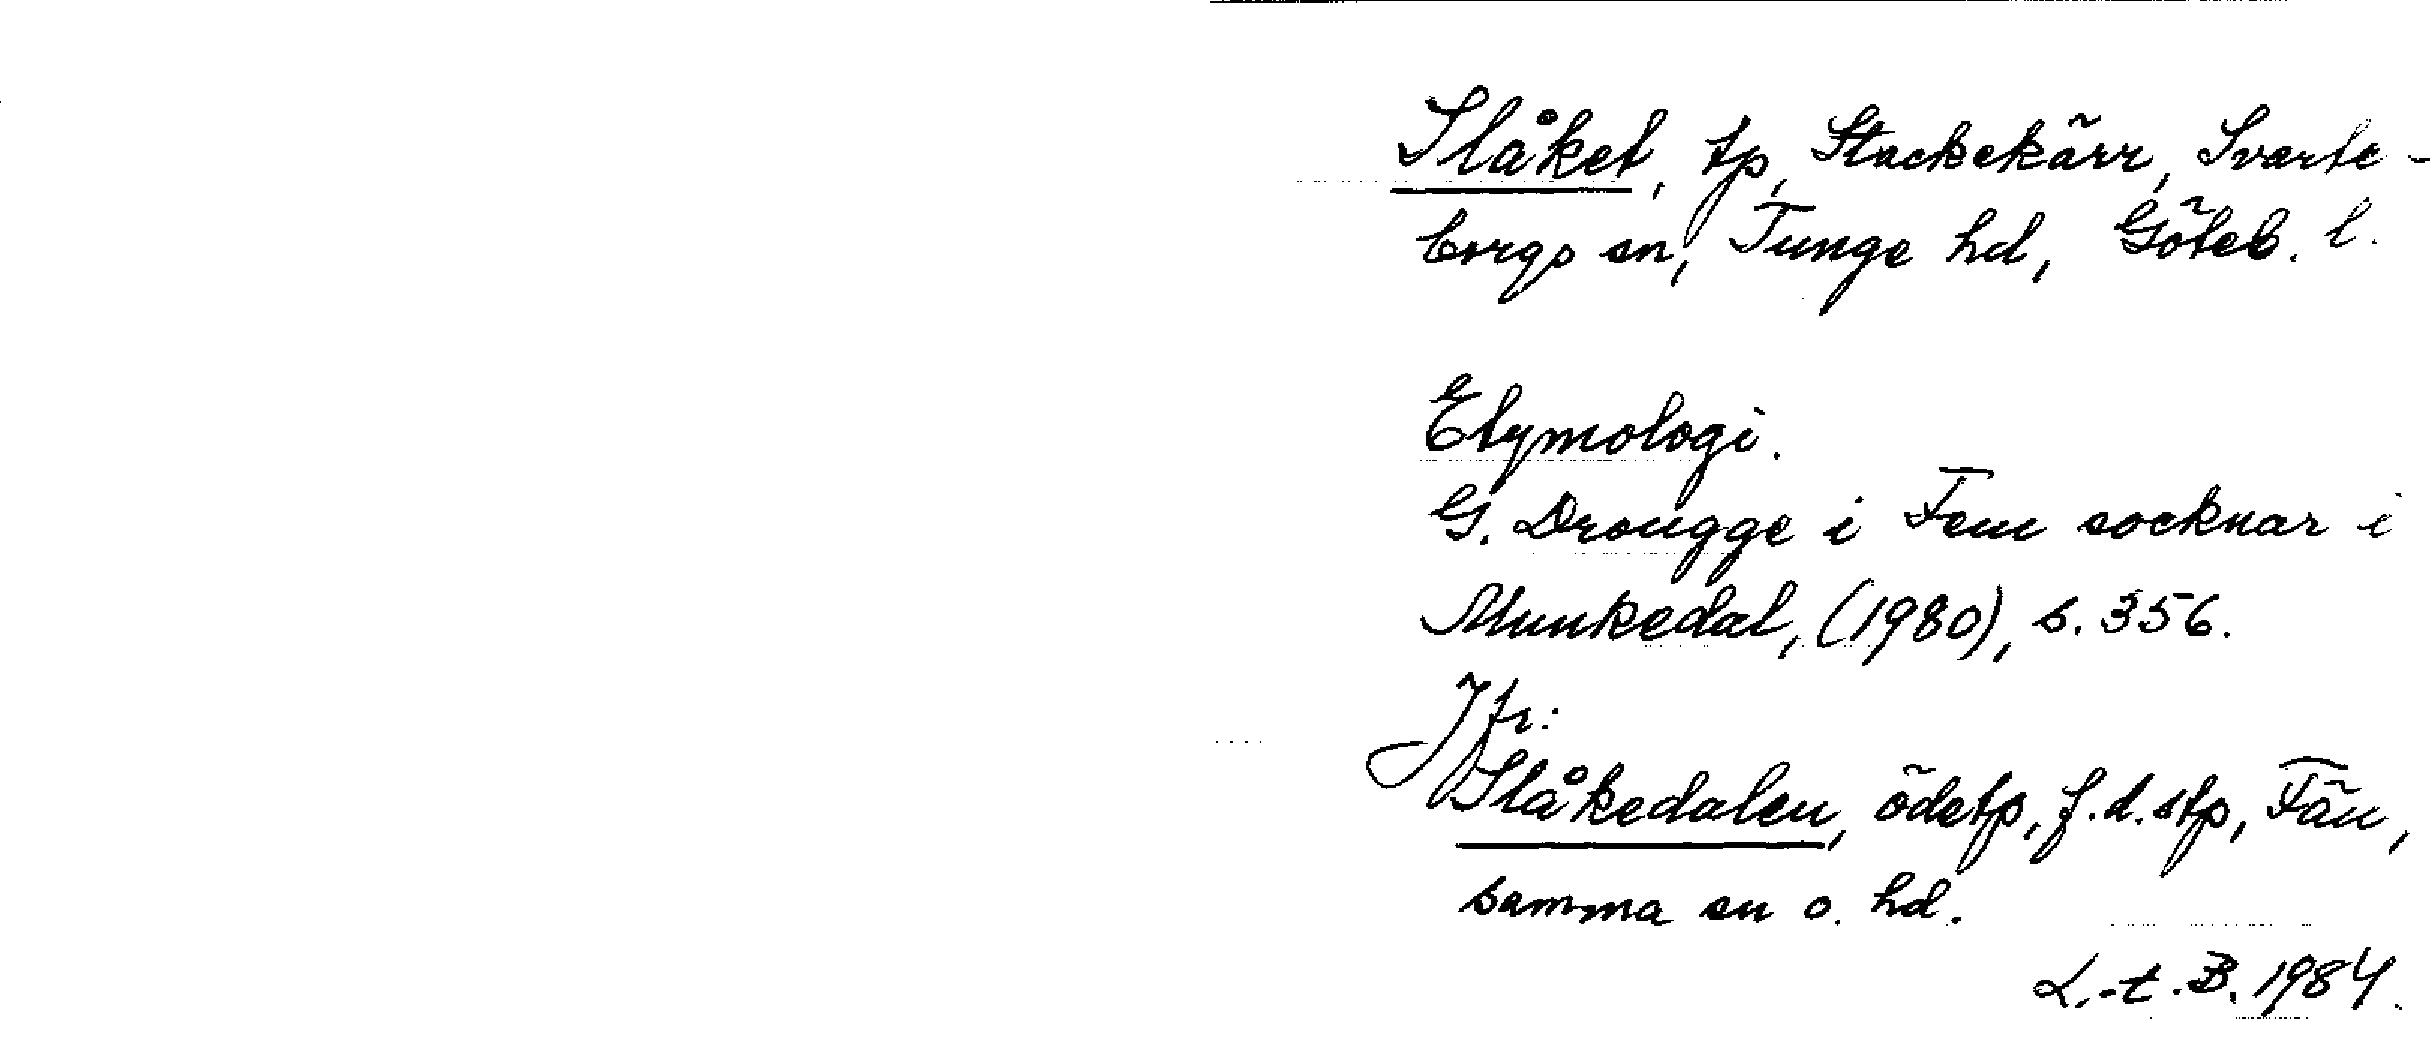 Slåket, tp, Stackekärr, Svarte-
borgs sn, Tunge hd, Göteb. l.
Etymologi.
G. Drougge i Fem socknar i
Munkedal, (1980), s. 356.
Jfr:
Slåkedalen, ödetp, f.d. stp, Fän,
samma sn o. hd.
L.-t. B. 1984.